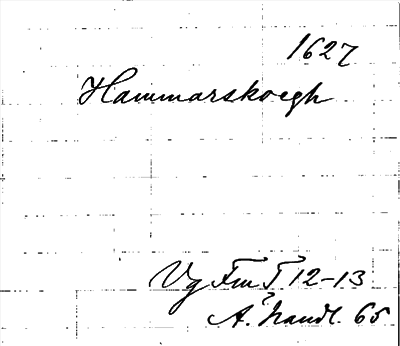 1627
Hammarskoegh
Vg Fm T 12-13
A. handl. 65